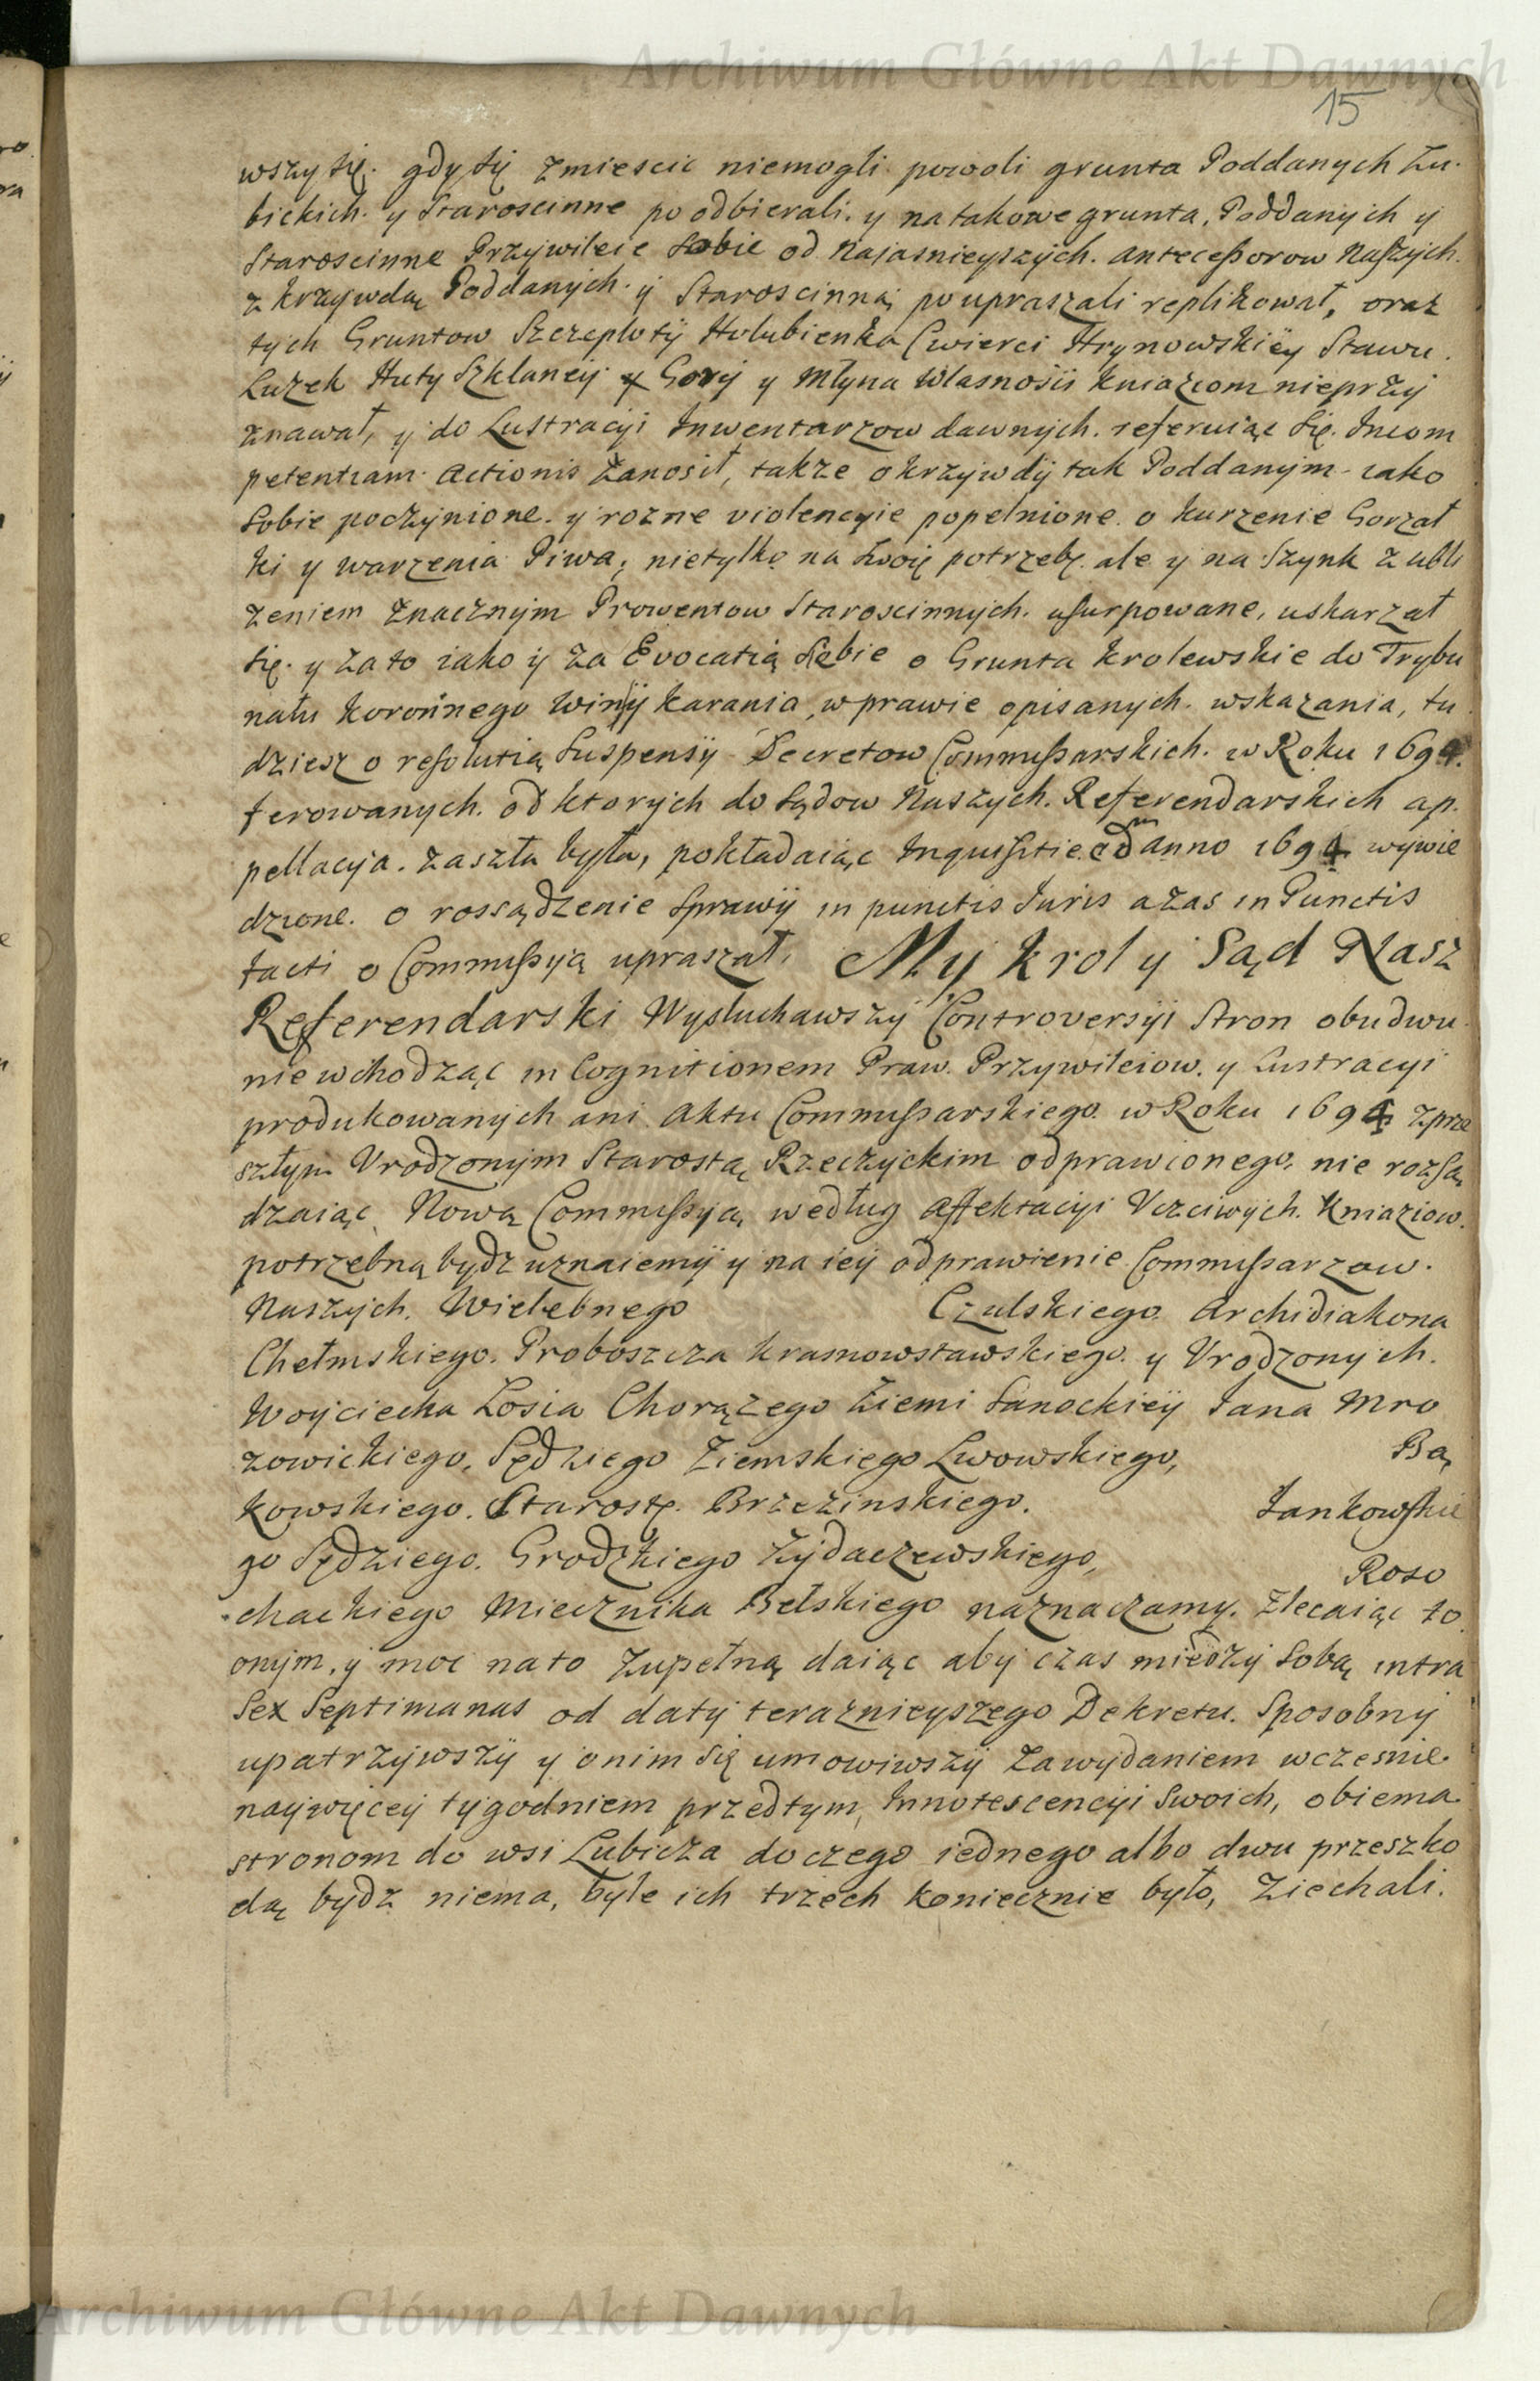 Archiwum Główne Akt Dawnych
15
wszy się. gdy się zmiescic niemogli powoli grunta Poddanych Lu.
bickich. y Staroscinne po odbierali. y na takowe grunta, Poddanych y
Staroscinne Przywileie sobie od Naiasnieyszych. Antecessorow Naszych.
z krzywdą Poddanych. y Staroscinną poupraszali replikował, oraz
tych Gruntow Szczepłoty Hołubienka Cwierci Hrynowskiey Stawu.
Luzek Huty Szklaney y Gory y Młyna Własnosii Kniaziom nieprzy
znawał, y do Lustracyi Inwentarzow dawnych. referuiąc się. Incom
petentiam Actionis zanosił, takze o krzywdy tak Poddanym iako
Sobie poczynione. y rozne violencyie popełnione o kurzenie Gorzał
ki y warzenia Piwa, nietylko na swoię potrzebę. ale y na Szynk z ubli
zeniem znacznym Prowentow Staroscinnych. usurpowane, uskarzał
się. y za to iako y za Evocatią siebie o Grunta krolewskie do Trybu
nału koronnego Winy karania, w prawie opisanych. wskazania, tu
dziesz o resolutią Suspensy Decretow Commissarskich. w Roku 1694.
ferowanych. od ktorych do Sądow Naszych. Referendarskich ap.
pellacyja. zaszła była, pokładaiąc Inquisitie eodm anno 1694 wywie
dzione. o rossądzenie Sprawy in punctis Juris a zas in Punctis
facti o Commissyią upraszał. My krol y Sąd Nasz
Referendarski Wysłuchawszy Controversyi Stron obudwu
nie wchodząc in Cognitionem Praw. Przywileiow. y Lustracyi
produkowanych ani Aktu Commissarskiego. w Roku 1694 z prze
szłym Vrodzonym Starostą Rzeczyckim odprawionego, nie rozsą
dzaiąc Nową Commissyią według Affektacyi Vczciwych. Kniaziow.
potrzebną bydz uznaiemy y na iey odprawienie Commissarzow.
Naszych. Wielebnego Czulskiego Archidiakona
Chełmskiego. Proboszcza krasnowstawskiego. y Vrodzonych.
Woyciecha Łosia Chorązego Ziemi Sanockiey Jana Mro
zowickiego, Sędziego Ziemskiego Lwowskiego, Bą
kowskiego. Starostę. Brzezinskiego. Jankowskie
go Sędziego. Grodzkiego Zydaczewskiego, Roso
chackiego Miecznika Bełskiego naznaczamy. Zlecaiąc to
onym, y moc na to zupełną daiąc aby czas miedzy sobą intra
Sex Septimanas od daty teraznieyszego Dekretu. Sposobny
upatrzywszy y o nim się umowiwszy za wydaniem wczesnie.
naywięcey tygodniem przedtym, Innotescencyi swoich, obiema
stronom do wsi Lubicza do czego iednego albo dwu przeszko
dą bydz niema, byle ich trzech koniecznie było, ziechali.
Archiwum Główne Akt Dawnych